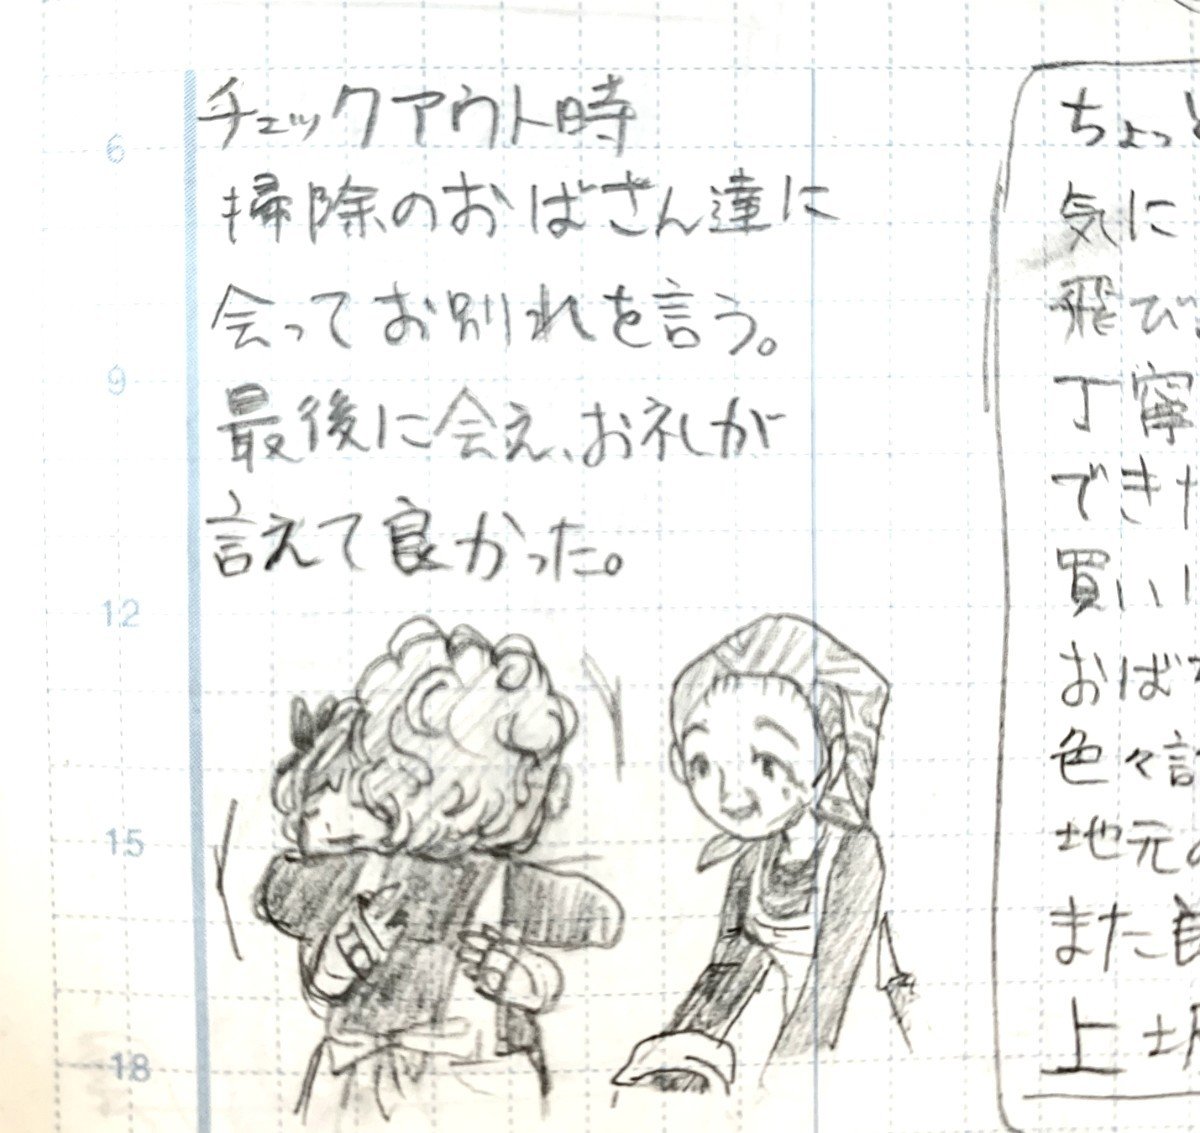 チェックアウト時
掃除のおばさん達に
会ってお別れを言う。
最後に会え、お礼が
言えて良かった。
6
9
12
15
18
ちょっ
気に
飛び
丁寧
でき
買い
おば
色々
地元
また
上